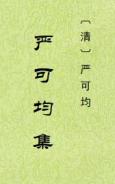 〔清〕严可均
严可均集